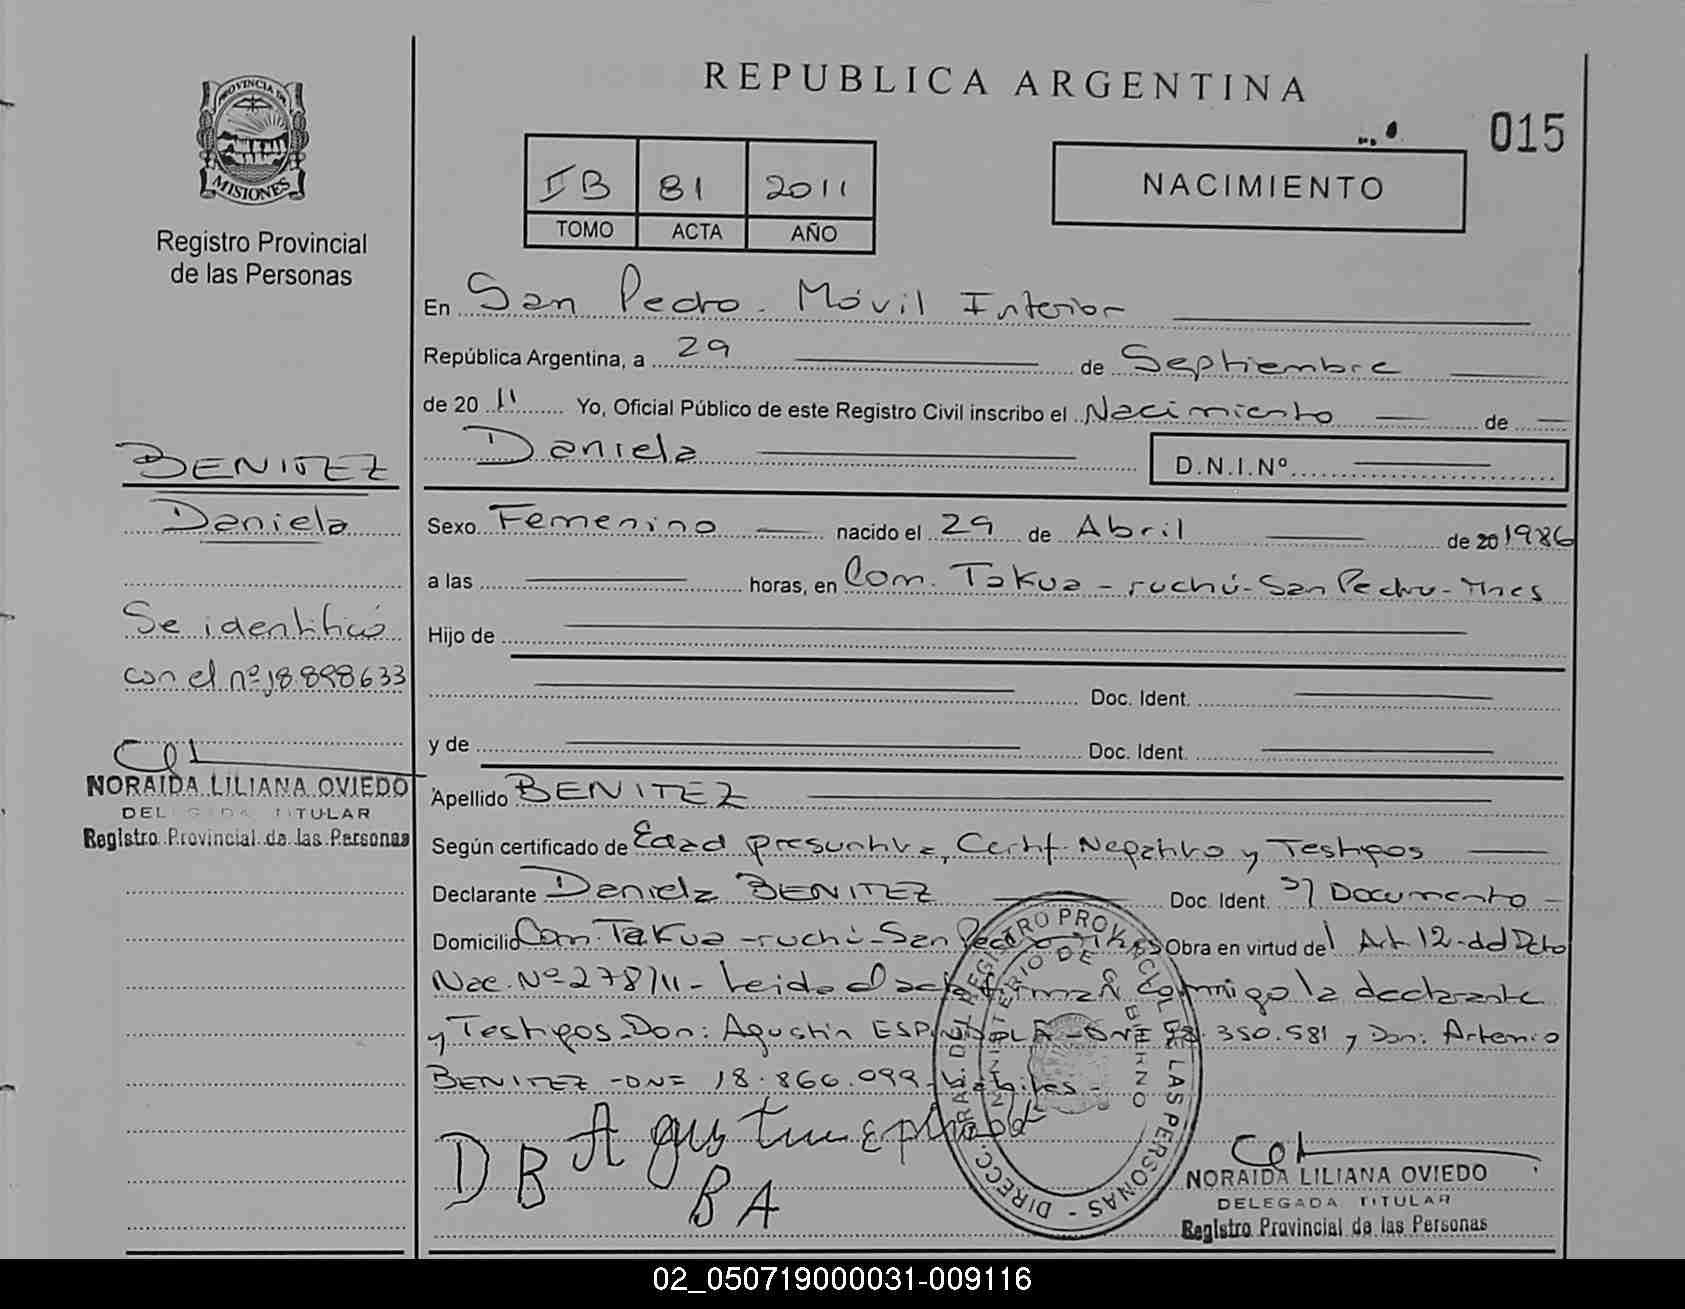 REPUBLICA ARGENTINA
015
PROVINCIA DE
MISIONES
Registro Provincial
de las Personas
II B 81 2011
TOMO ACTA AÑO
NACIMIENTO
En San Pedro - Móvil Interior
República Argentina, a 29 de Septiembre
de 20 11 Yo, Oficial Público de este Registro Civil inscribo el Nacimiento de
Daniela
D.N.I.Nº
BENITEZ
Daniela
Se identificó
con el nº 18.898633
NORAIDA LILIANA OVIEDO
DELEGADA TITULAR
Registro Provincial de las Personas
Sexo Femenino nacido el 29 de Abril de 20 1986
a las horas, en Com. Takua-ruchú-San Pedro-Mnes
Hijo de
Doc. Ident.
y de Doc. Ident.
Apellido BENITEZ
Según certificado de Edad presuntiva, Certif. Negativo y Testigos
Declarante Daniela BENITEZ Doc. Ident. S/ Documento
Domicilio Com. Takua-ruchú-San Pedro-Mnes Obra en virtud del Art. 12-del Dcto
Nac. Nº 278/11- Leida el acta firman conmigo la declarante
y Testigos Don: Agustín ESPINDOLA -DNI 350.581 y Don: Artemio
BENITEZ -DNI 18.866.099- Hábiles-
DB Agustin
BA
DIRECC. GRAL. DEL REGISTRO PROVINCIAL DE LAS PERSONAS -
MINISTERIO DE GOBIERNO
NORAIDA LILIANA OVIEDO
DELEGADA TITULAR
Registro Provincial de las Personas
02_050719000031-009116